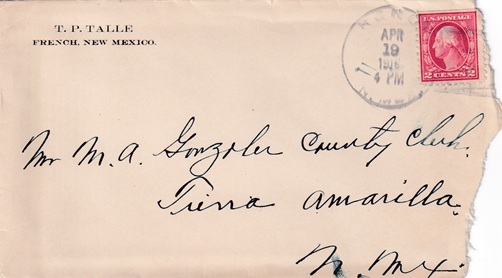 T. P. TALLE
FRENCH, NEW MEXICO.
APR
19
4 PM
N. MEX.
U.S. POSTAGE
2 CENTS 2
Mr M. A. Gonzoler County Clerk.
Tierra Amarilla.
N. Mex.